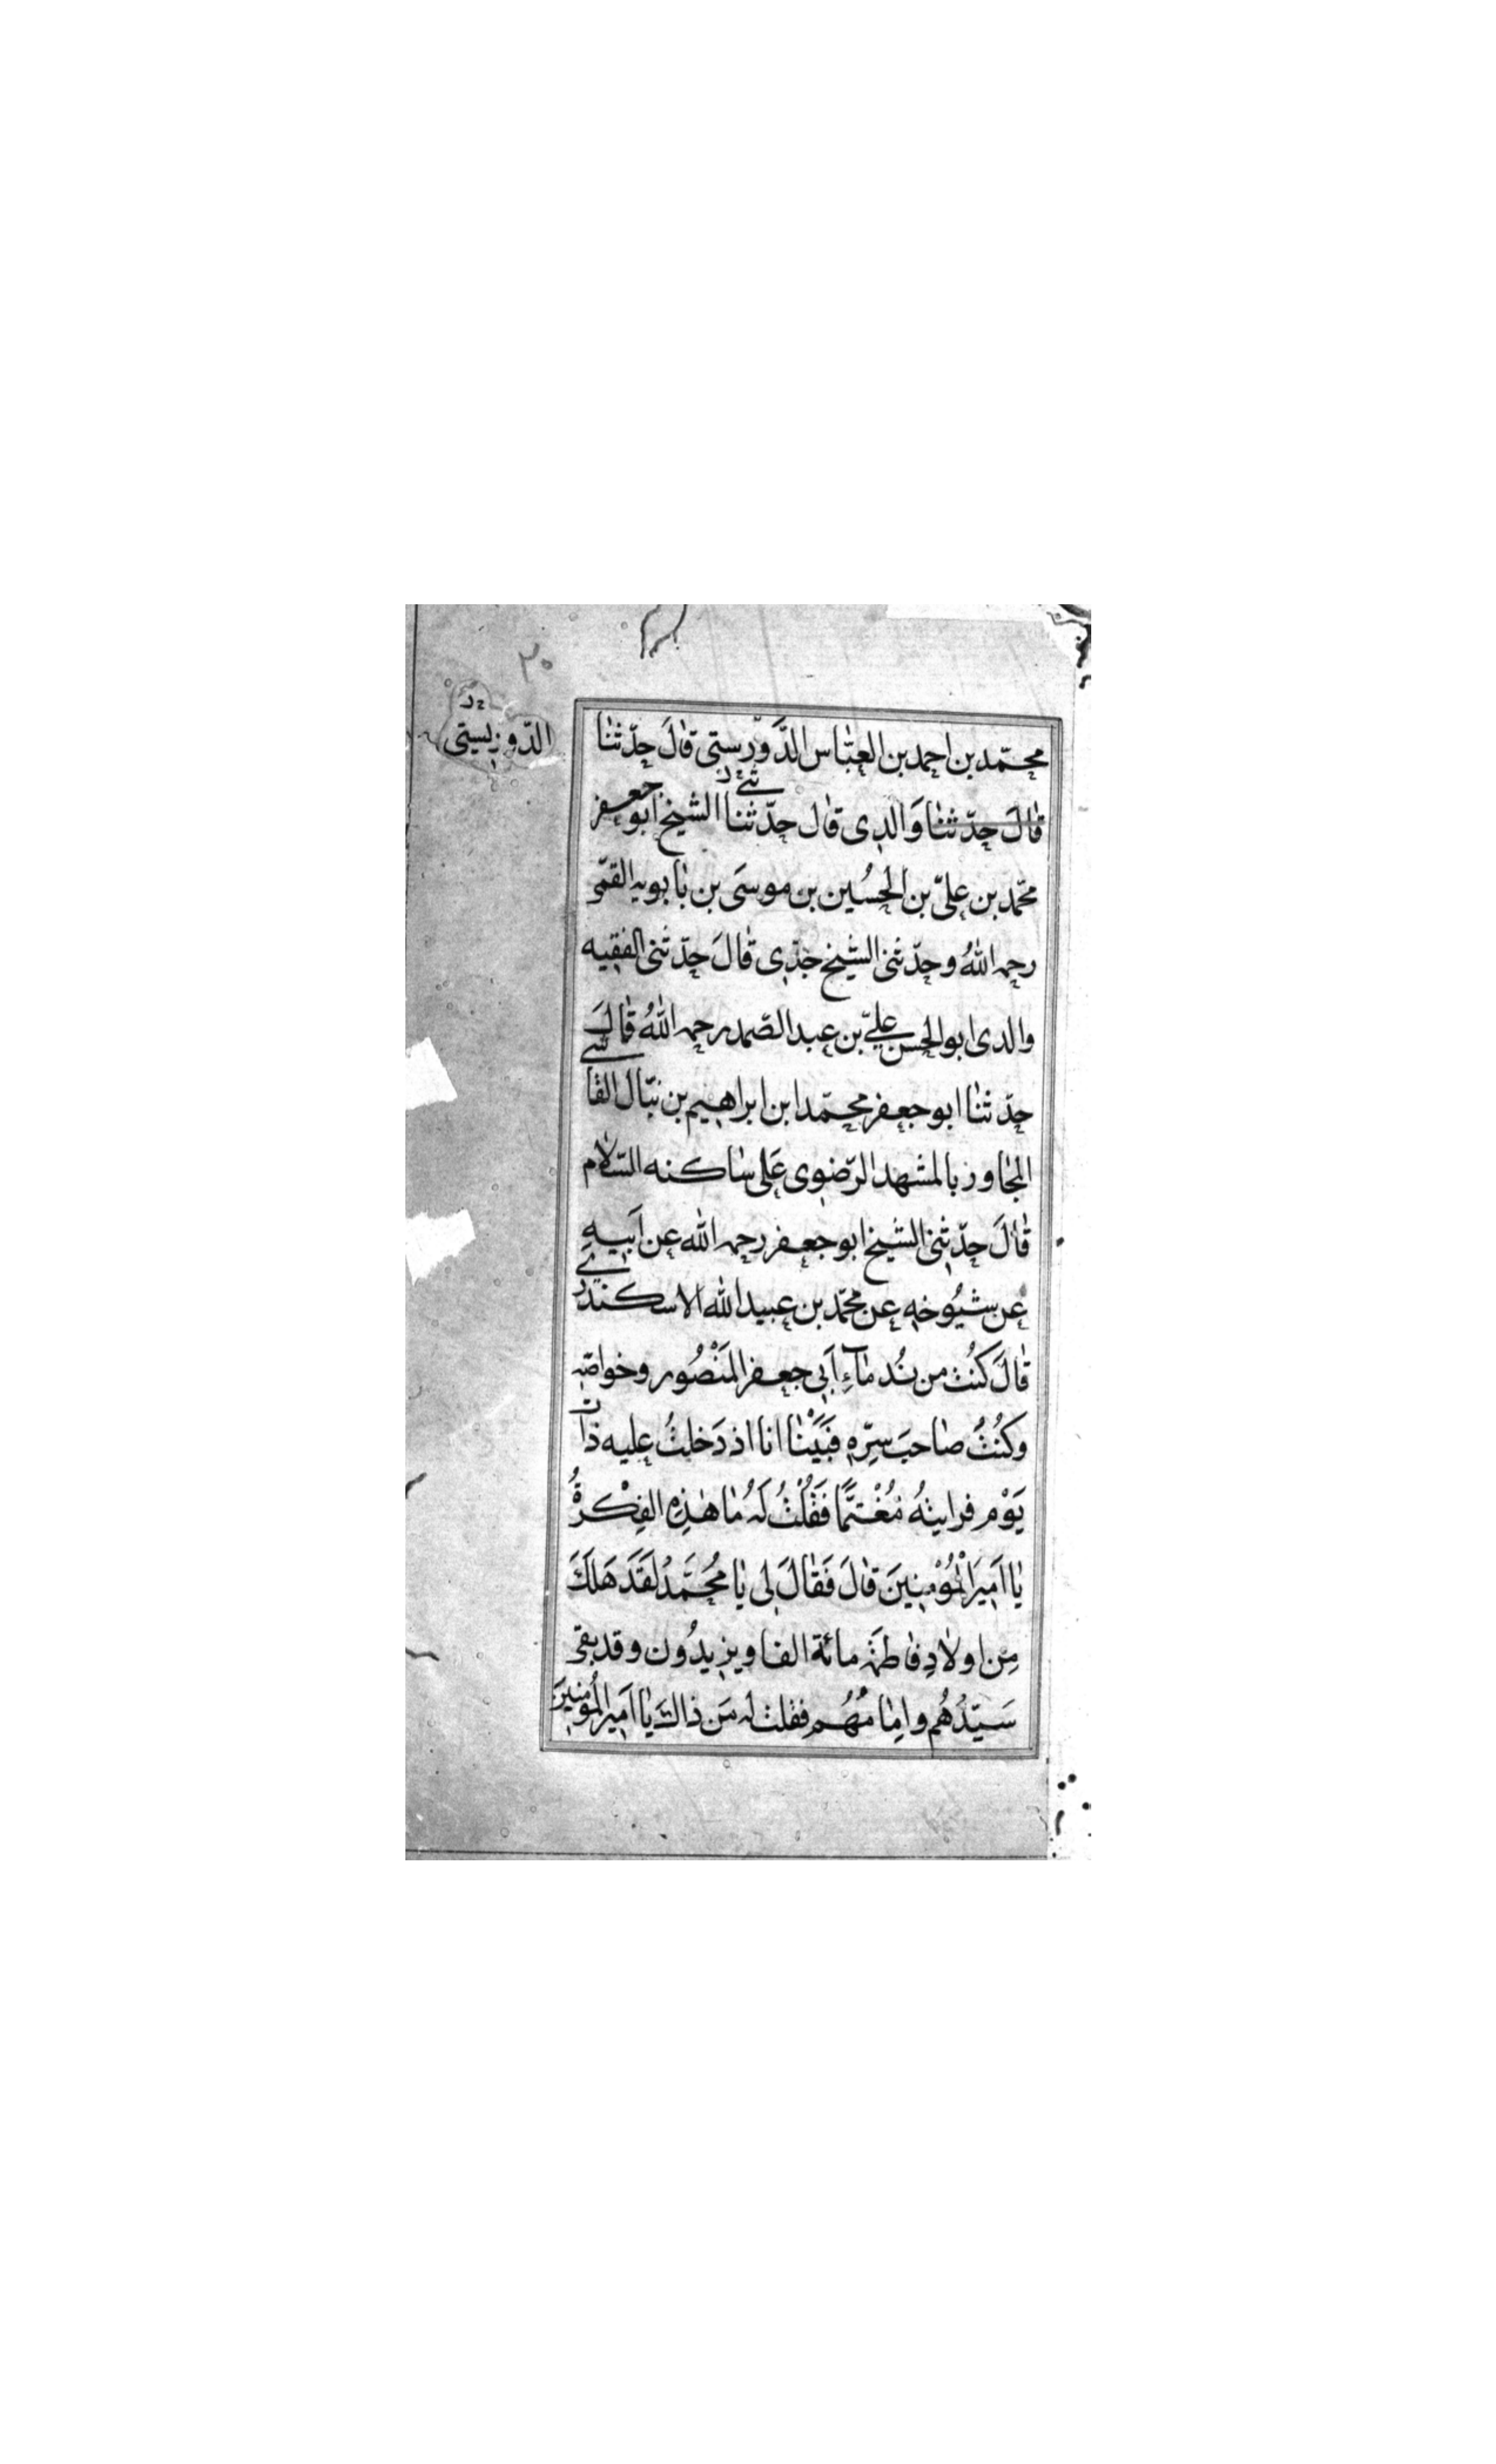 ٢٠
الدّوريستى
محمّد بن احمد بن العبّاس الدَّورستى قالَ حدّثنا
قالَ حدّثنا وَالدى قال حدّثنا الشيخ ابو جعفر
محمّد بن علىّ بن الحسُين بن موسَى بن بابويه القمّى
رحمه اللهُ وحدّثنى الشيخ جدّى قالَ حدّثنى الفقيه
والدى ابو الحسن علىّ بن عبد الصّمد رحمه اللهُ قالَ
حدّثنا ابو جعفر محمّد ابن ابراهيم بن نبّال القاشى
المجاور بالمشهد الرّضوى عَلى ساكنه السّلام
قالَ حدّثنى الشيخ ابو جعفر رحمه الله عن اَبيهِ
عن شيُوخه عن محمّد بن عبيد الله الاسكندرى
قالَ كنُت من نُدماءِ اَبى جعفر المَنْصُور وخواصّه
وكنُتُ صاحبَ سِرّهِ فبَيْنا انا اذ دَخلتُ عليه ذات
يَوْم فرايتهُ مُغْتمًّا فَقُلْتُ لَهُ مٰا هٰذِهِ الفِكْرةُ
يٰا اَمِيرَ الْمُؤْمِنِينَ قالَ فَقٰالَ لِى يٰا مُحَمَّدُ لَقَدَ هَلَكَ
مِن اولادِ فاطمَة مائة الفا ويزيدُون وقد بقى
سَيّدُهُم واِمامُهُم فقلت له مَن ذالكَ يٰا اَمِير المُؤمِنِينَ